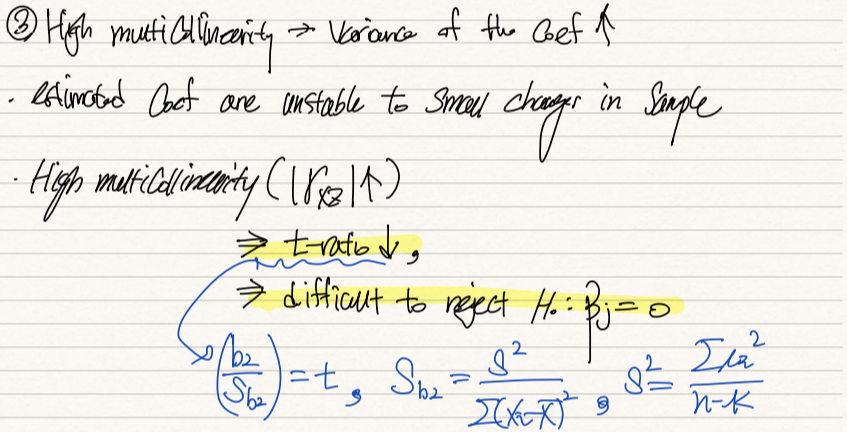 ③ High multicollinearity → Variance of the Coef ↑
· estimated Coef are unstable to small changes in Sample
· High multicollinearity (|r_xz|↑)
⇒ t-ratio ↓,
⇒ difficult to reject H₀ : βj = 0
(b₂/S_b₂) = t, S_b₂ = s²/Σ(Xi-X̄)², s² = Σûi²/n-K